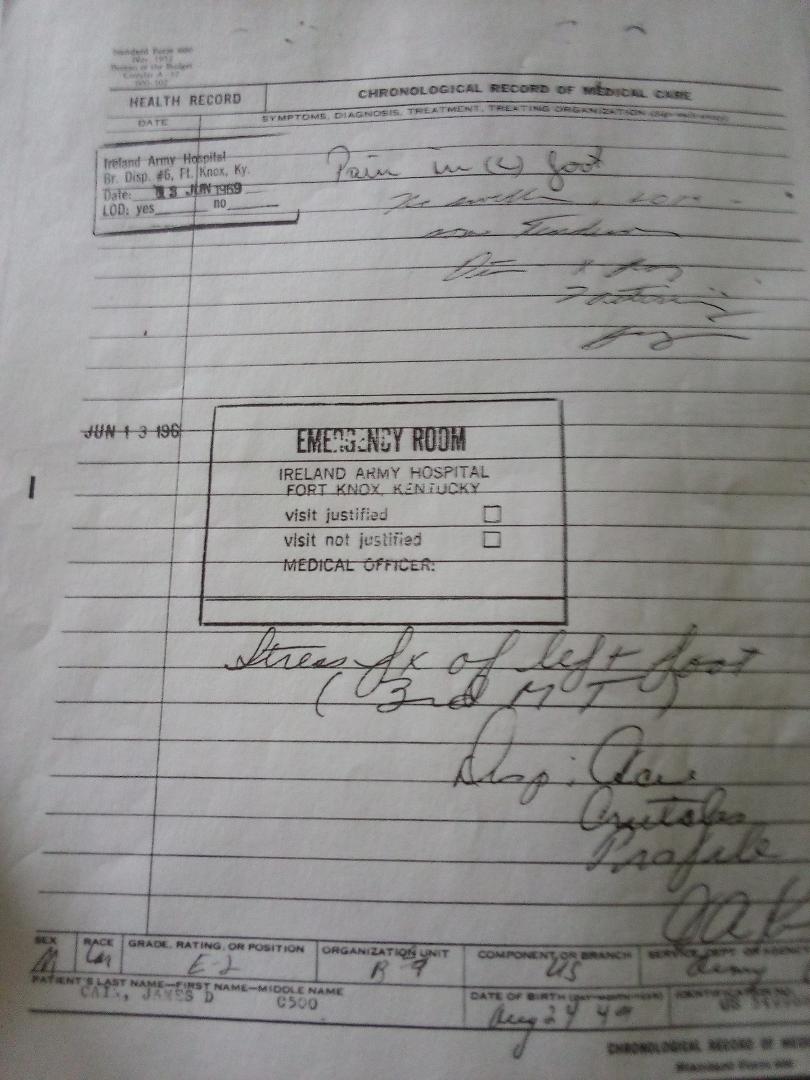 Standard Form 600
Bureau of the Budget
Circular A-
HEALTH RECORD
CHRONOLOGICAL RECORD OF MEDICAL CARE
DATE
SYMPTOMS, DIAGNOSIS, TREATMENT, TREATING ORGANIZATION
Ireland Army Hospital
Br. Disp. #6, Ft. Knox, Ky.
Date: 13 JUN 1969
LOD: yes____ no____
Pain in (L) foot
No
some
JUN 13 196
EMERGENCY ROOM
IRELAND ARMY HOSPITAL
FORT KNOX, KENTUCKY
visit justified
visit not justified
MEDICAL OFFICER:
Stress fx of left foot
(3rd MT)
Disp: Ace
Crutches
Profile
SEX
RACE
GRADE, RATING, OR POSITION
ORGANIZATION UNIT
COMPONENT OR BRANCH
SERVICE, DEPT. OR AGENCY
M
E-2
B 9
US
Army
PATIENT'S LAST NAME—FIRST NAME—MIDDLE NAME
DATE OF BIRTH
IDENTIFICATION NO.
JAMES D
C500
Aug 24 49
US
CHRONOLOGICAL RECORD OF MEDI
Standard Form 600